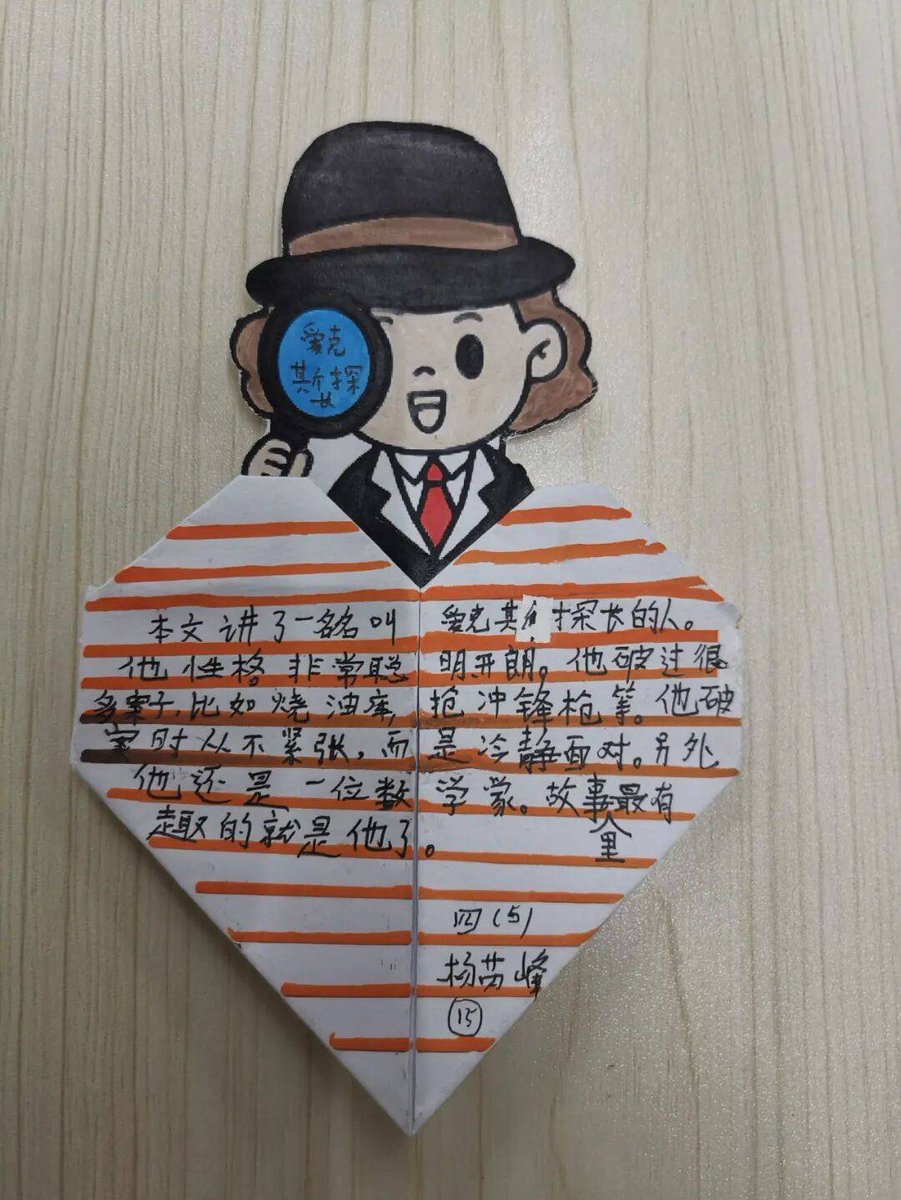 爱克
斯探
长
本文讲了一名名叫爱克斯探长的人。
他性格非常聪明开朗。他破过很
多案子,比如烧油库,抢冲锋枪等。他破
案时从不紧张,而是冷静面对。另外,
他还是一位数学家。故事里最有
趣的就是他了。
四(5)
杨芮峰
15